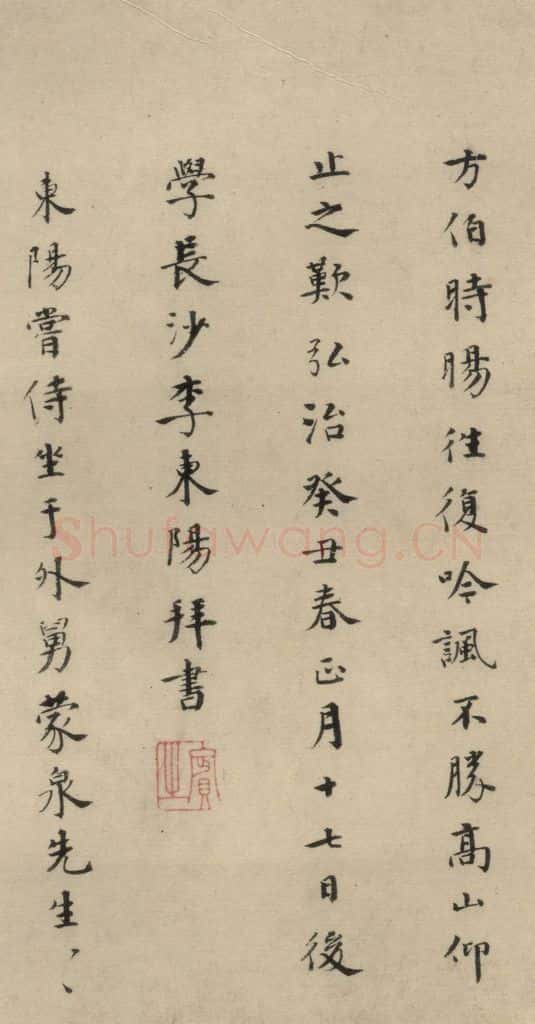 方伯時暘往復吟諷不勝高山仰
止之歎弘治癸丑春正月十七日後
學長沙李東陽拜書
東陽嘗侍坐于外舅蒙泉先生〻
賓之
Shufawang.CN